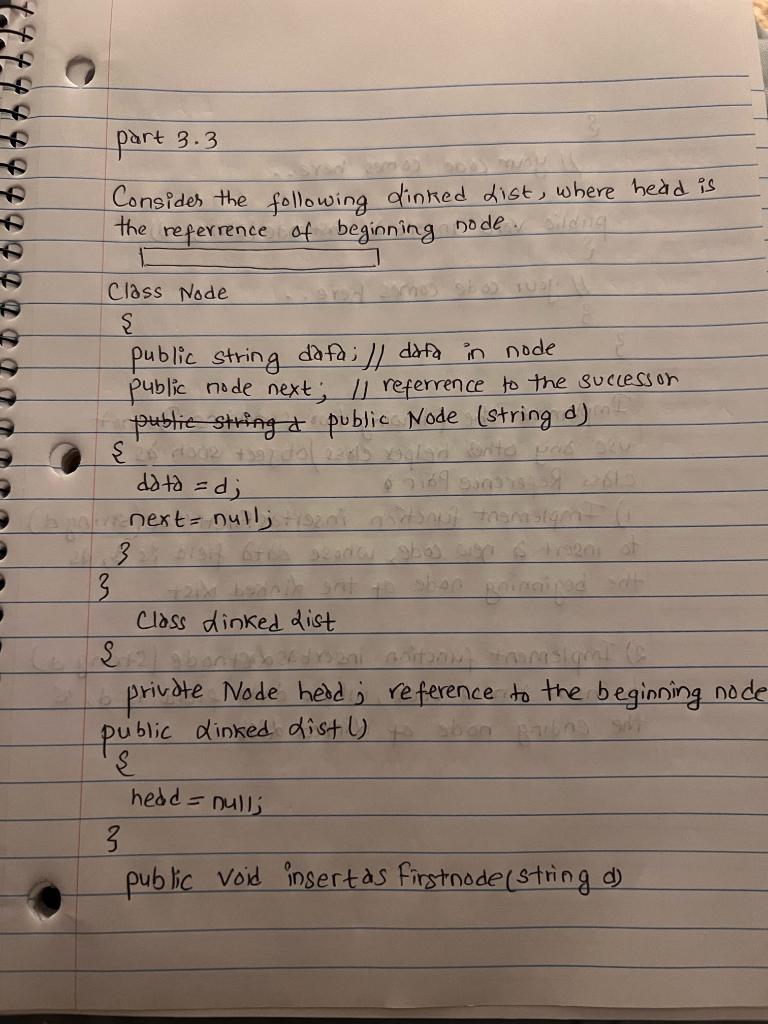 part 3.3
Consider the following Linked List, where head is
the referrence of beginning node.
Class Node
{
public string data; // data in node
public node next; // referrence to the successor
public string d public Node (string d)
{
data = d;
next = null;
}
}
Class Linked List
{
private Node head; reference to the beginning node
public Linked List()
{
head = null;
}
public void insertas Firstnode(string d)